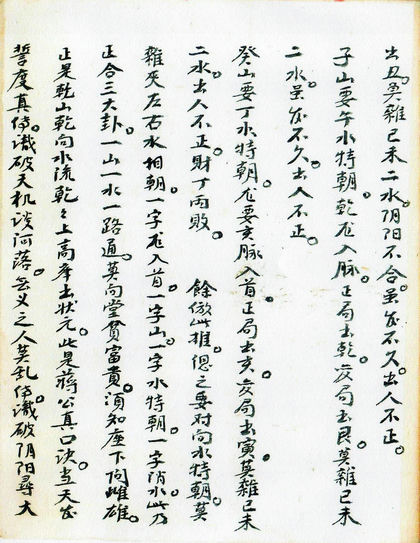 出丑。莫雜已未二水。阴阳不合。虽发不久。出人不正。
子山要午水特朝。乾龙入脉。正局出乾。変局出艮。莫雜已未
二水。虽发不久。出人不正。
癸山要丁水特朝。龙要亥脉入首。正局出亥。変局出寅。莫雜已未
二水。出人不正。財丁両敗。餘倣此推。偬之要对向水特朝。莫
雜夾左右水相朝。一字龙入首。一字山。一字水特朝。一字消水。此乃
正合三大卦。一山一水一路通。莫向堂貧富貴。須知座下问雌雄。
正是乾山乾向水流乾。乾上高峯出状元。此是蒋公真口诀。当天发
誓度真传。識破天机谈河落。无义之人莫乱传。識破阴阳尋大